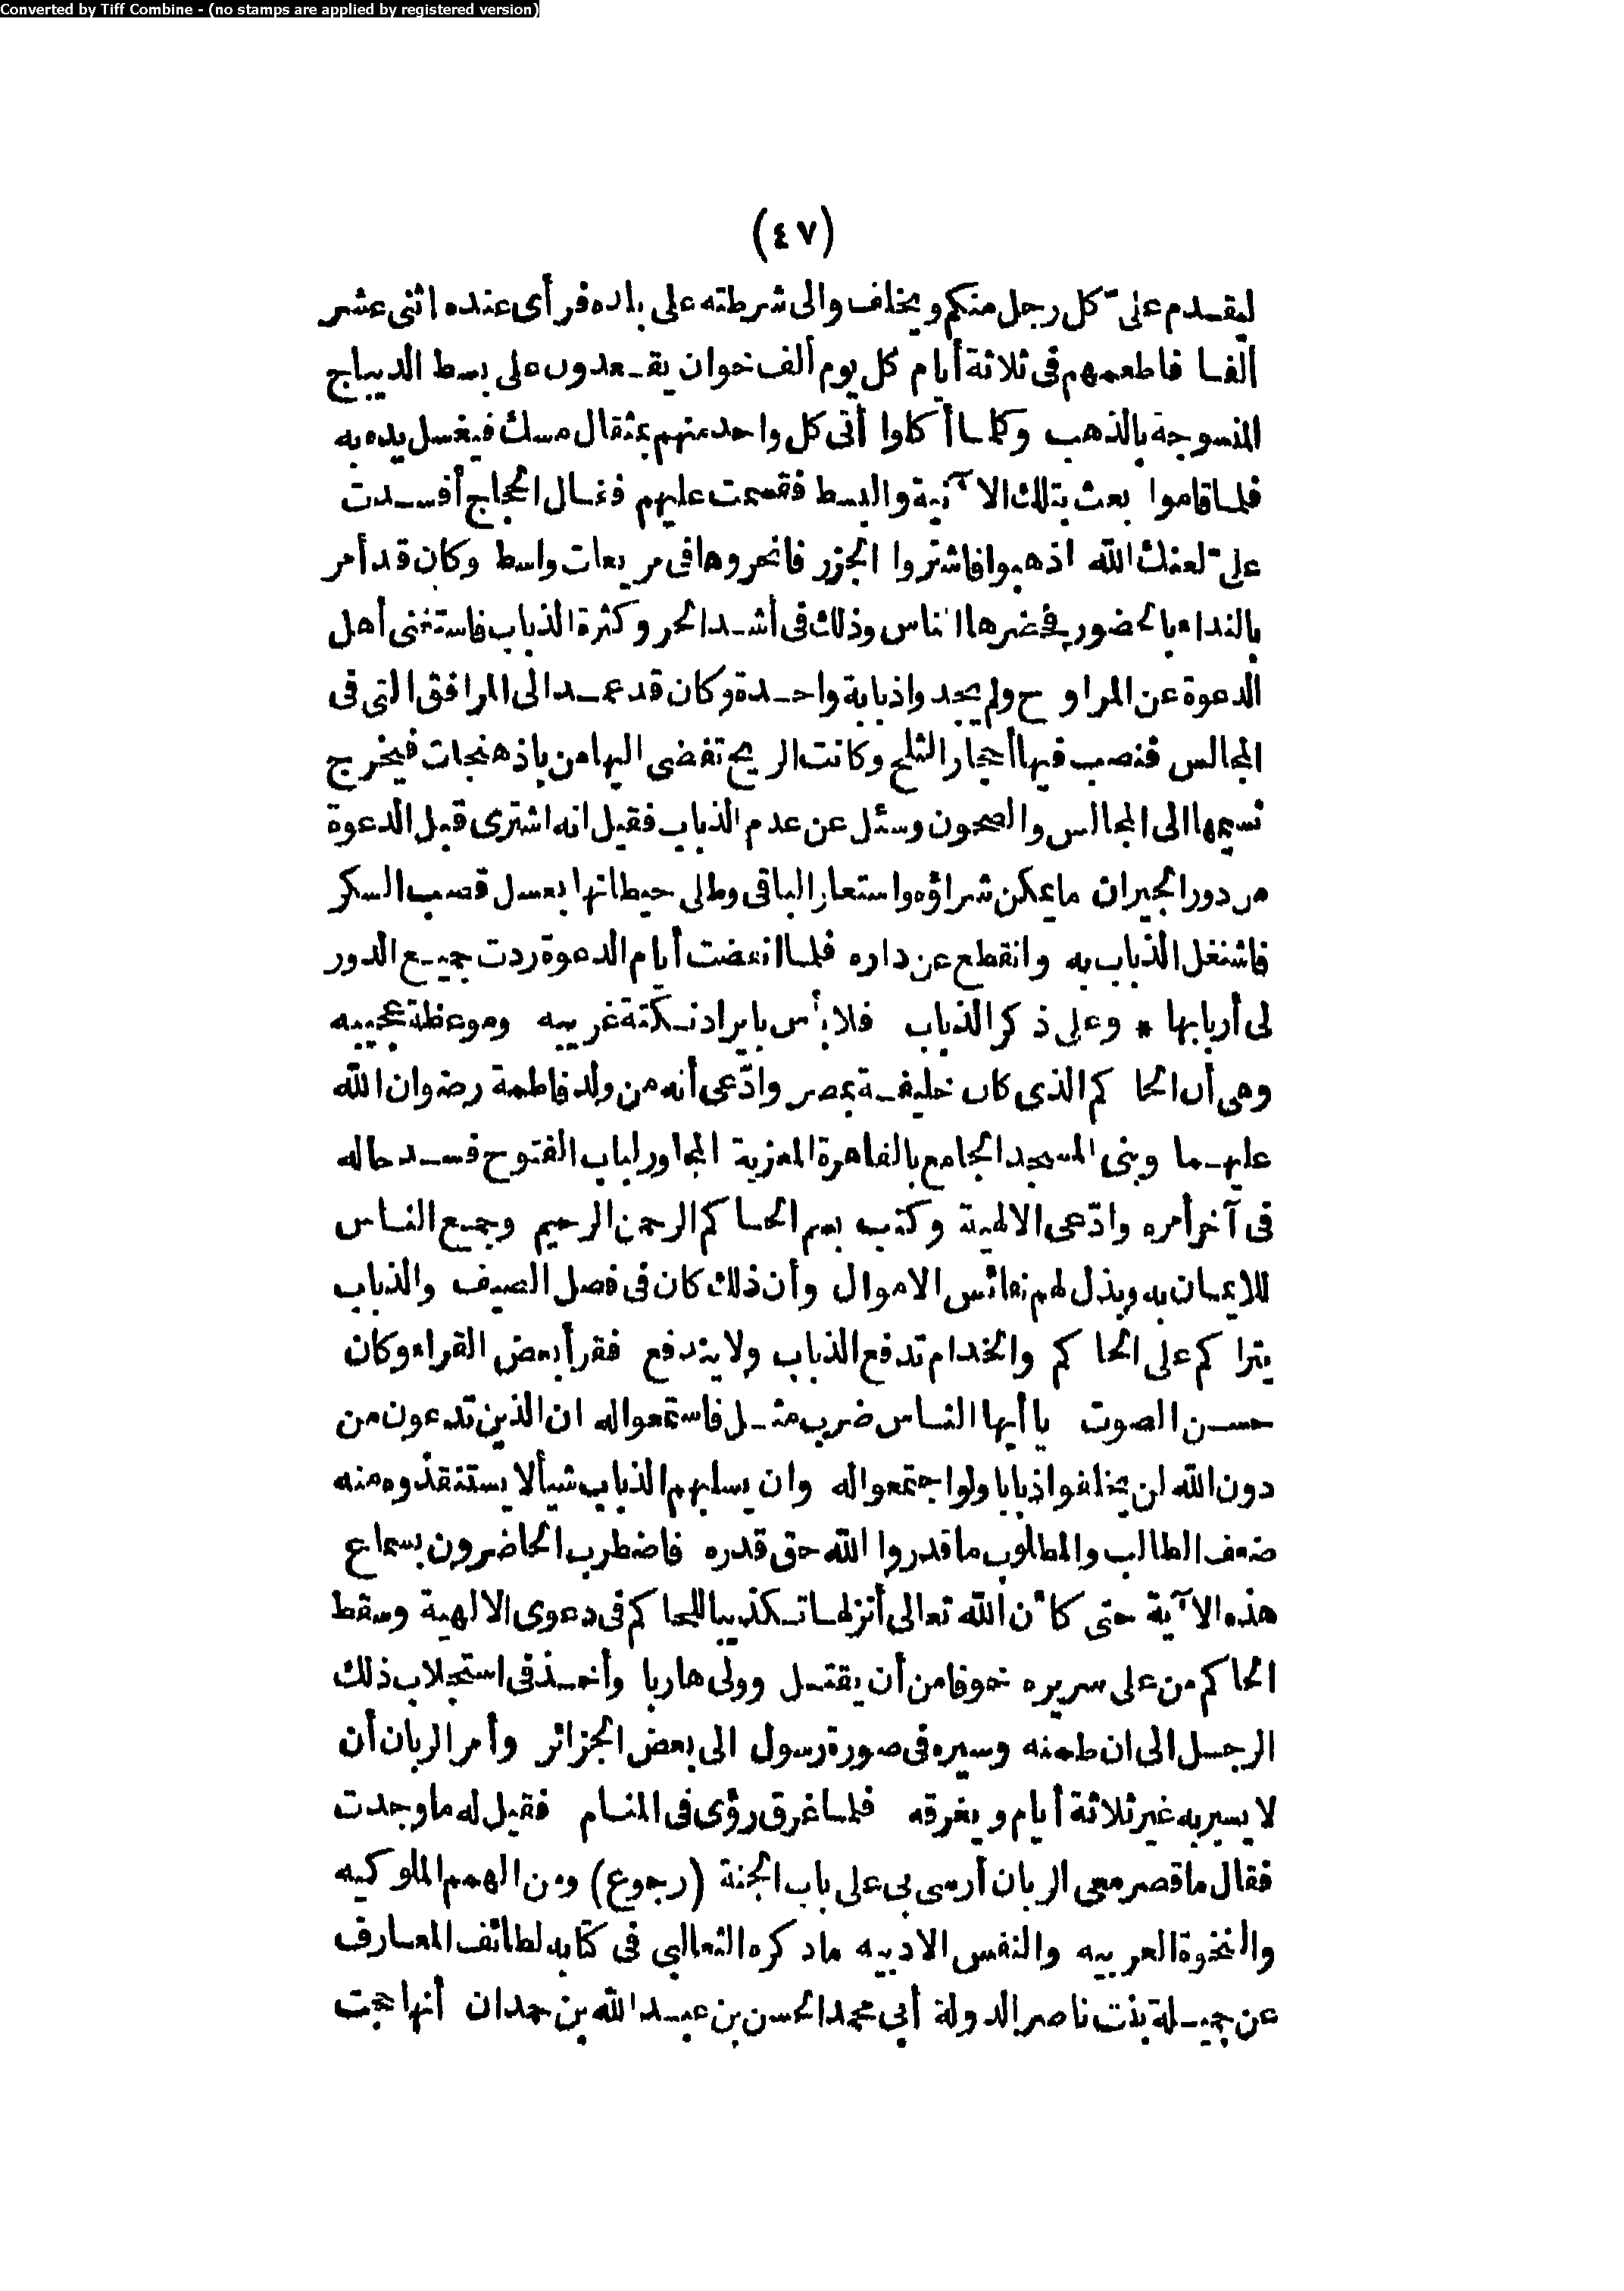 Converted by Tiff Combine - (no stamps are applied by registered version)
(٤٧)
ليقدم علىّ كل رجل منكم ويخلف والى شرطته على بلده فرأى عنده اثنى عشر
ألفا فاطعمهم فى ثلاثة أيام كل يوم ألف خوان يقعدون على بسط الديباج
المنسوجة بالذهب وكلما أكلوا أتى كل واحد منهم بمثقال مسك فيغسل يده به
فلما قاموا بعث بتلك الآنية والبسط فقسمت عليهم فقال الحجاج أفسدت
علىّ لعنك الله اذهبوا فاشتروا الجزر فانحروها فى مربعات واسط وكان قد أمر
بالنداء بالحضور فغمرها الناس وذلك فى أشد الحر وكثرة الذباب فاستغنى أهل
الدعوة عن المراوح ولم يجدوا ذبابة واحدة وكان قد عمد الى المرافق التى فى
المجالس فنصب فيها أحجار الثلج وكانت الريح تفضى اليها من باذهنجات فيخرج
نسيمها الى المجالس والصحون وسئل عن عدم الذباب فقيل انه اشترى قبل الدعوة
من دور الجيران ما يمكن شراؤه واستعار الباقى وطلى حيطانها بعسل قصب السكر
فاشتغل الذباب به وانقطع عن داره فلما انقضت أيام الدعوة ردت جميع الدور
لى أربابها * وعلى ذكر الذباب فلا بأس بايراد نكتة غريبه وموعظة عجيبه
وهى أن الحاكم الذى كان خليفة بمصر وادّعى أنه من ولد فاطمة رضوان الله
عليهما وبنى المسجد الجامع بالقاهرة المعزية المجاور لباب الفتوح فسد حاله
فى آخر أمره وادّعى الالهية وكتب بسم الحاكم الرحمن الرحيم وجميع الناس
للايمان به وبذل لهم نفائس الاموال وأن ذلك كان فى فصل الصيف والذباب
يتراكم على الحاكم والخدام تدفع الذباب ولا يندفع فقرأ بعض القراء وكان
حسن الصوت يا أيها الناس ضرب مثل فاستمعوا له ان الذين تدعون من
دون الله لن يخلقوا ذبابا ولو اجتمعوا له وان يسلبهم الذباب شيأ لا يستنقذوه منه
ضعف الطالب والمطلوب ما قدروا الله حق قدره فاضطرب الحاضرون بسماع
هذه الآية حتى كأن الله تعالى أنزلها تكذيبا للحاكم فى دعوى الالهية وسقط
الحاكم من على سريره خوفا من أن يقتل وولى هاربا وأخذ فى استجلاب ذلك
الرجل الى ان طمنه وسيره فى صورة رسول الى بعض الجزائر وأمر الربان أن
لا يسير به غير ثلاثة أيام ويغرقه فلما غرق رؤى فى المنام فقيل له ما وجدت
فقال ما قصر معى الربان أرسى بى على باب الجنة (رجوع) ومن الهمم الملوكيه
والنخوة العربيه والنفس الادبيه ما ذكره الثعالبى فى كتابه لطائف المعارف
عن جميلة بنت ناصر الدولة أبى محمد الحسن بن عبد الله بن حمدان أنها حجت